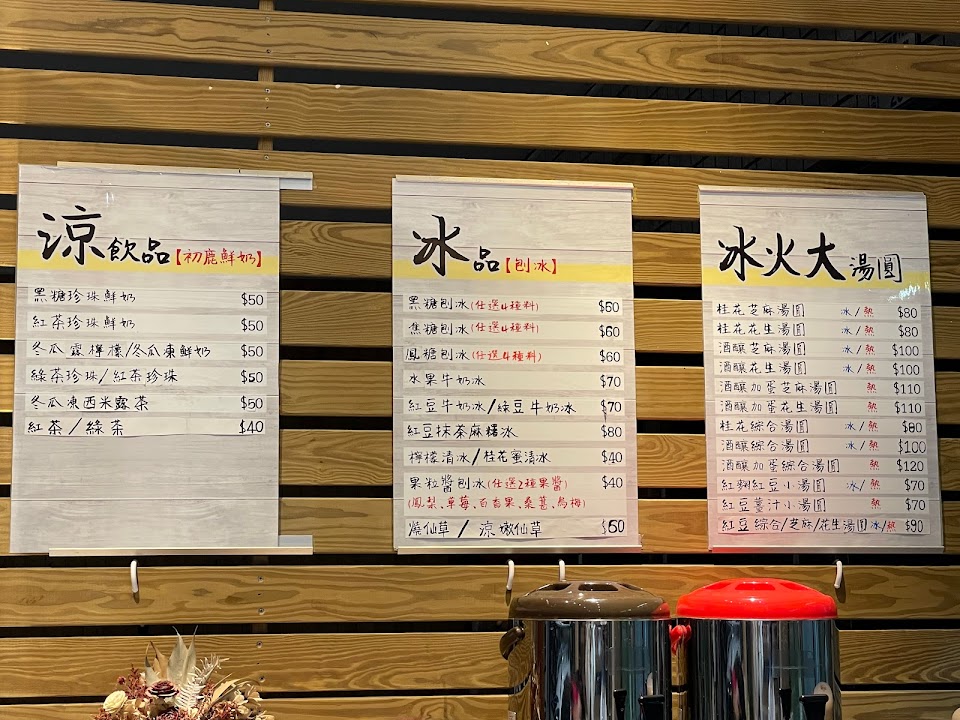 涼飲品【初鹿鮮奶】
黑糖珍珠鮮奶 $50
紅茶珍珠鮮奶 $50
冬瓜露檸檬/冬瓜凍鮮奶 $50
綠茶珍珠/紅茶珍珠 $50
冬瓜凍西米露茶 $50
紅茶/綠茶 $40
冰品【刨冰】
黑糖刨冰(任選4種料) $60
焦糖刨冰(任選4種料) $60
鳳糖刨冰(任選4種料) $60
水果牛奶冰 $70
紅豆牛奶冰/綠豆牛奶冰 $70
紅豆抹茶麻糬冰 $80
檸檬清冰/桂花蜜清冰 $40
果粒醬刨冰(任選2種果醬) $40
(鳳梨、草莓、百香果、桑葚、烏梅)
燒仙草/涼嫩仙草 $50
冰火大湯圓
桂花芝麻湯圓 冰/熱 $80
桂花花生湯圓 冰/熱 $80
酒釀芝麻湯圓 冰/熱 $100
酒釀花生湯圓 冰/熱 $100
酒釀加蛋芝麻湯圓 熱 $110
酒釀加蛋花生湯圓 熱 $110
桂花綜合湯圓 冰/熱 $80
酒釀綜合湯圓 冰/熱 $100
酒釀加蛋綜合湯圓 熱 $120
紅麴紅豆小湯圓 冰/熱 $70
紅豆薑汁小湯圓 熱 $70
紅豆綜合/芝麻/花生湯圓 冰/熱 $90